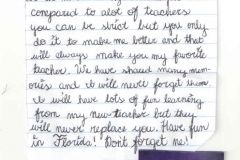 compared to alot of teachers
you can be strict but you only
do it to make me better and that
will always make you my favorite
teacher. We have shared many mem-
ories and it will never forget them
it will have lots of fun learning
from my new teacher but they
will never replace you. Have fun
in Florida! Dont forget me!